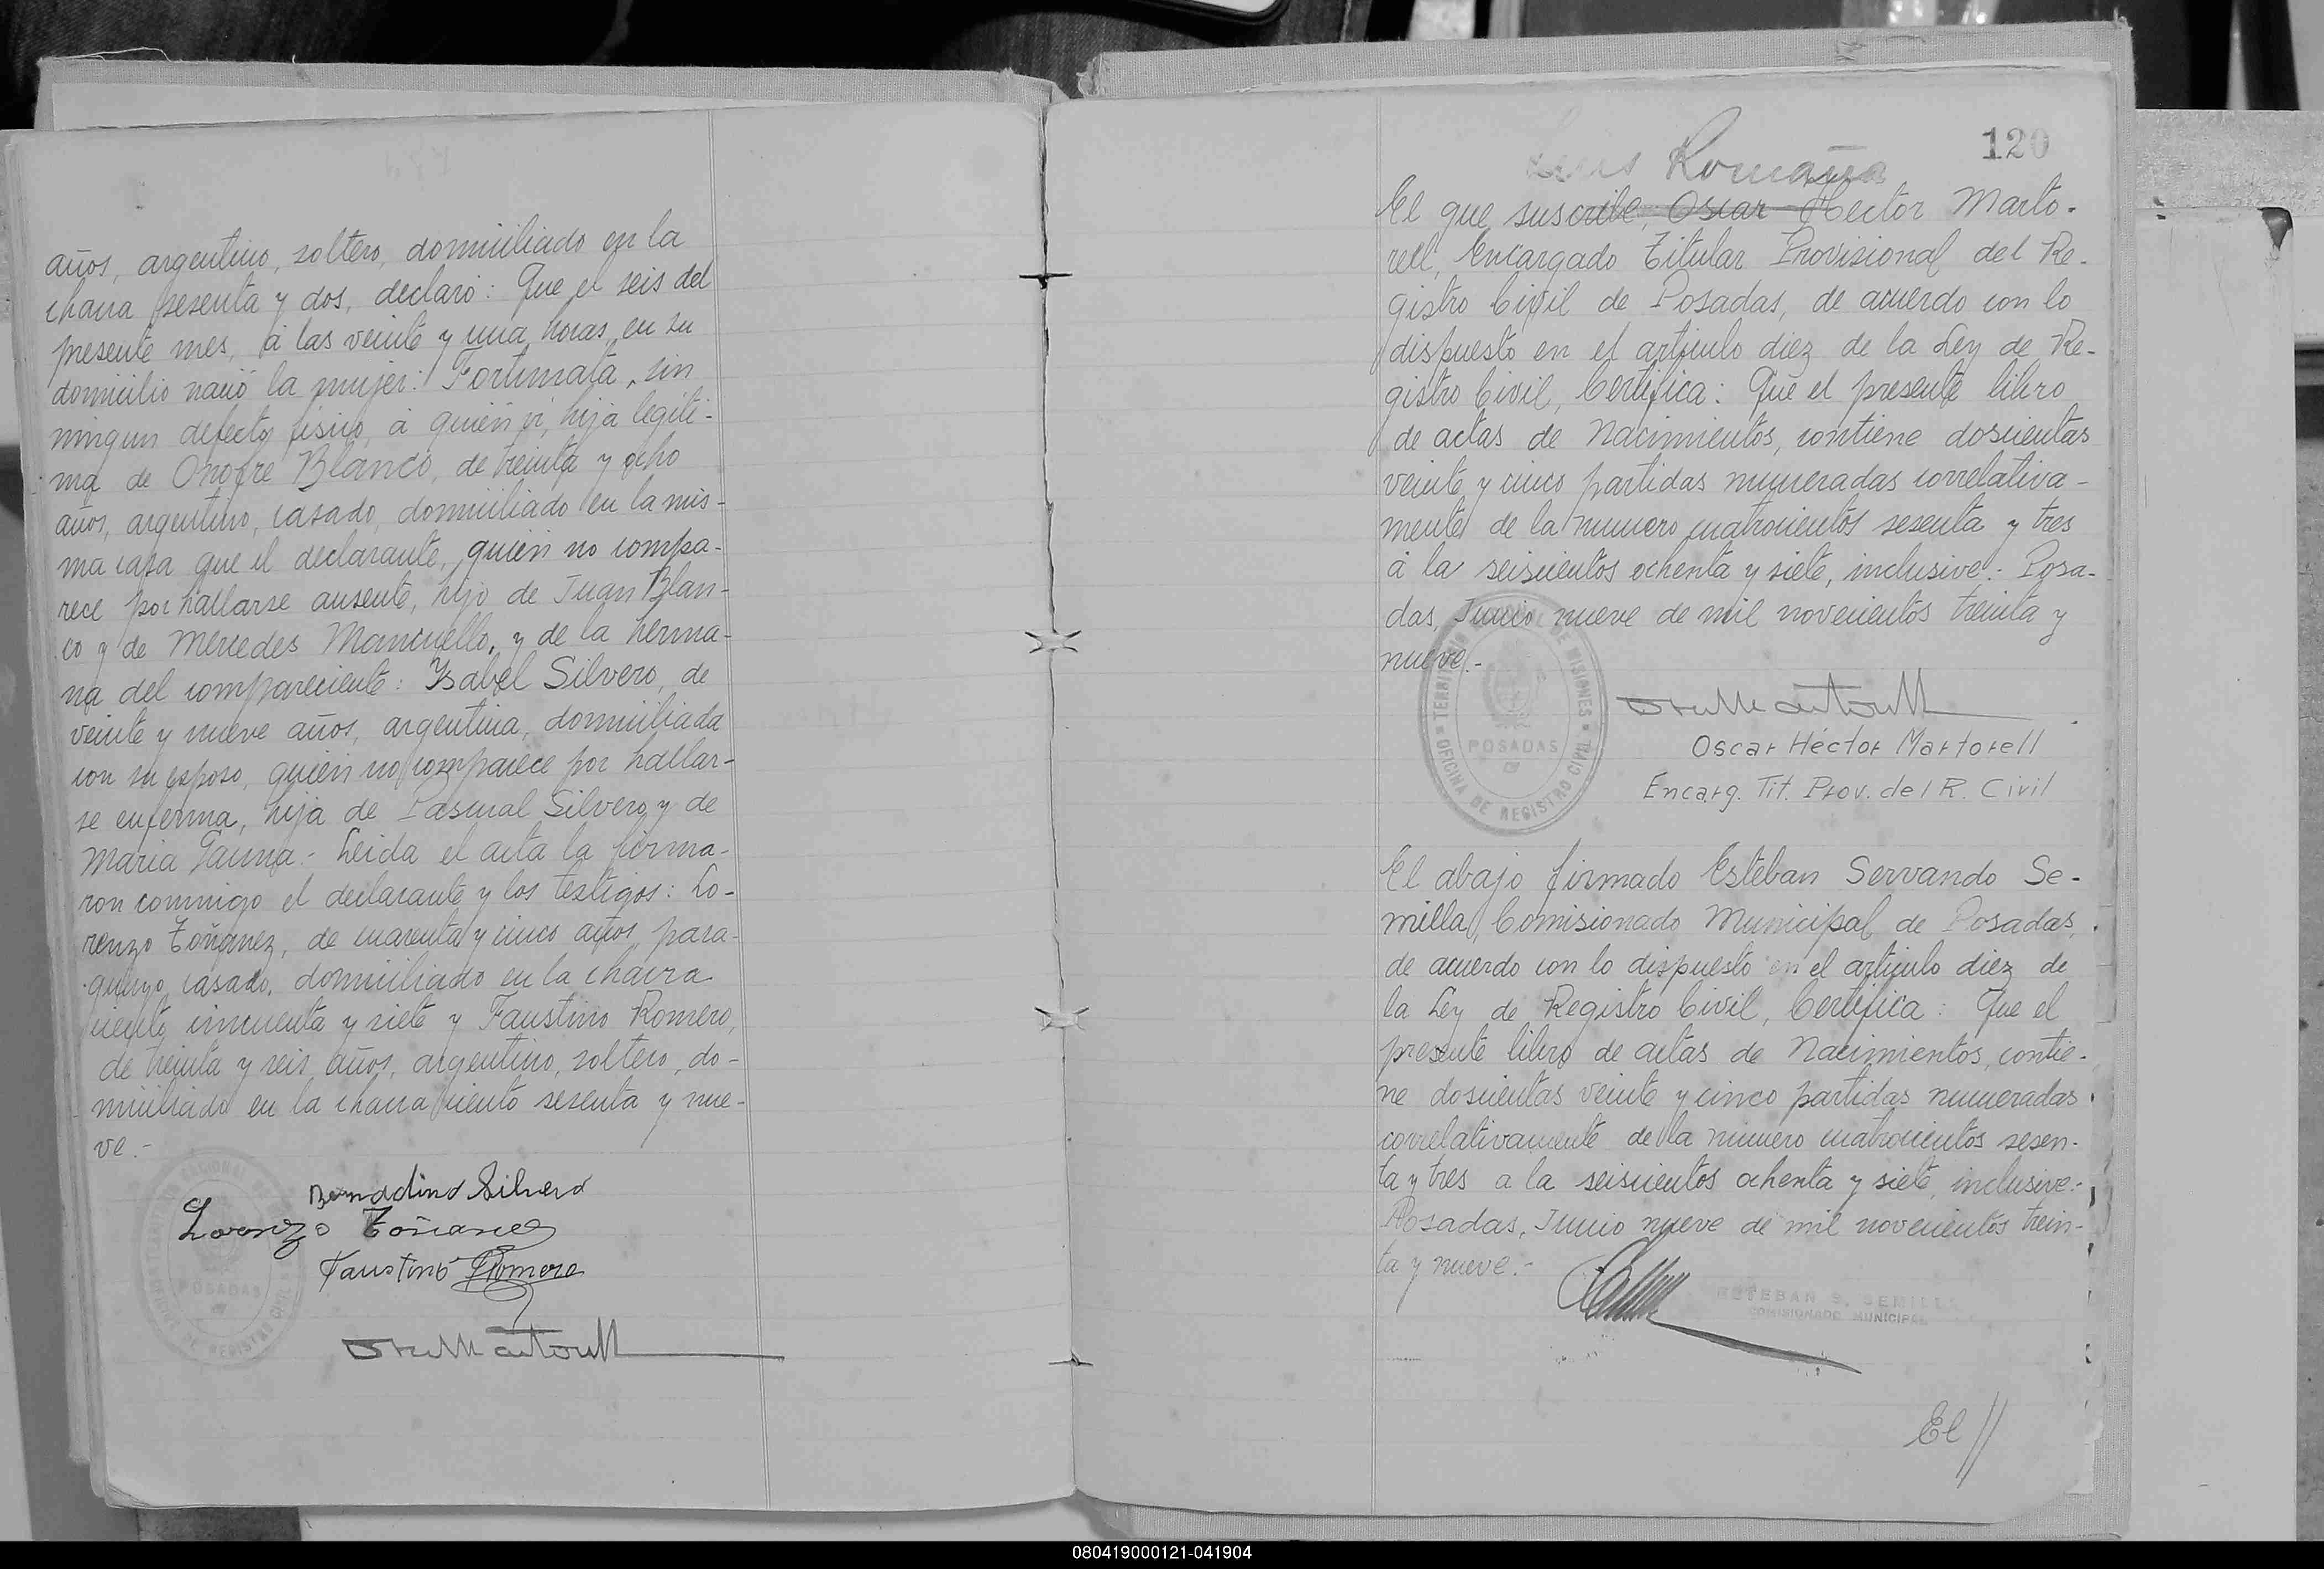 años, argentino, soltero, domiciliado en la
chacra sesenta y dos, declaró: Que el seis del
presente mes, á las veinte y una horas, en su
domicilio nació la mujer: Fortunata, sin
ningun defecto fisico, á quién ví, hija legiti-
ma de Onofre Blanco, de treinta y ocho
años, argentino, casado, domiciliado en la mis-
ma casa que el declarante, quién no compa-
rece por hallarse ausente, hijo de Juan Blan-
co y de Mercedes Mancuello, y de la herma-
na del compareciente: Ysabel Silvero, de
veinte y nueve años, argentina, domiciliada
con su esposo, quién no comparece por hallar-
se enferma, hija de Pascual Silvero y de
Maria Gauna.- Leida el acta la firma-
ron conmigo el declarante y los testigos: Lo-
renzo Toñanez, de cuarenta y cinco años, para-
guayo, casado, domiciliado en la chacra
ciento cincuenta y siete y Faustino Romero,
de treinta y seis años, argentino, soltero, do-
miciliado en la chacra ciento sesenta y nue-
ve.-
Bernadino Silvero
Lorenzo Toñanez
Faustino Romero
POSADAS
120
Luis Romaña
El que suscribe, Oscar Hector Marto-
rell, Encargado Titular Provisional del Re-
gistro Civil de Posadas, de acuerdo con lo
dispuesto en el articulo diez de la Ley de Re-
gistro Civil, Certifica: Que el presente libro
de actas de Nacimientos, contiene doscientas
veinte y cinco partidas numeradas correlativa-
mente de la numero cuatrocientos sesenta y tres
á la seiscientos ochenta y siete, inclusive.- Posa-
das, Junio nueve de mil novecientos treinta y
nueve.-
TERRITORIO NACIONAL DE MISIONES
POSADAS
OFICINA DE REGISTRO CIVIL
Oscar Héctor Martorell
Encarg. Tit. Prov. del R. Civil
El abajo firmado Esteban Servando Se-
milla, Comisionado Municipal de Posadas,
de acuerdo con lo dispuesto en el articulo diez de
la Ley de Registro Civil, Certifica: Que el
presente libro de actas de Nacimientos, contie-
ne doscientas veinte y cinco partidas numeradas
correlativamente de la numero cuatrocientos sesen-
ta y tres a la seiscientos ochenta y siete, inclusive.-
Posadas, Junio nueve de mil novecientos trein-
ta y nueve.-
ESTEBAN S. SEMILLA
COMISIONADO MUNICIPAL
El //
080419000121-041904